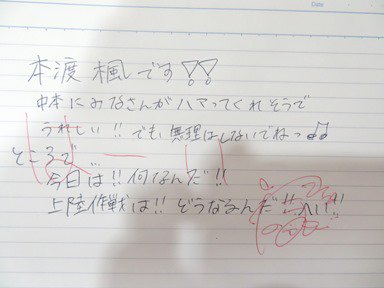 Date
本渡楓です!!
中本にみなさんがハマってくれそうで
うれしい!! でも無理はしないでねっ♪♪
ところで…
今日は!!何なんだ!!
上陸作戦は!! どうなるんだ!!